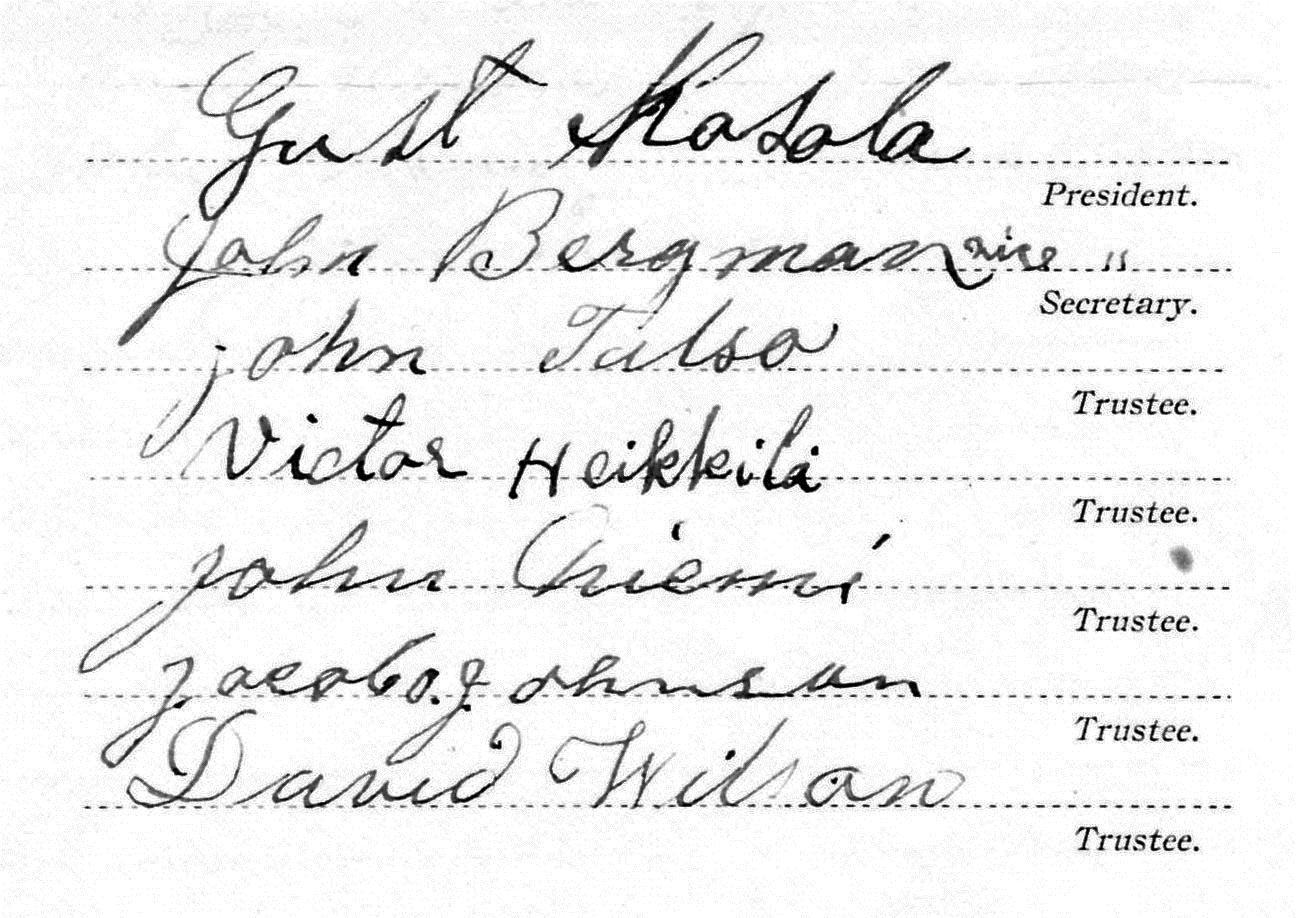 Gust Kosola
President.
John Bergman vice "
Secretary.
john Talso
Trustee.
Victor Heikkilä
Trustee.
john Niemi
Trustee.
jacob J ohnson
Trustee.
David Wilson
Trustee.